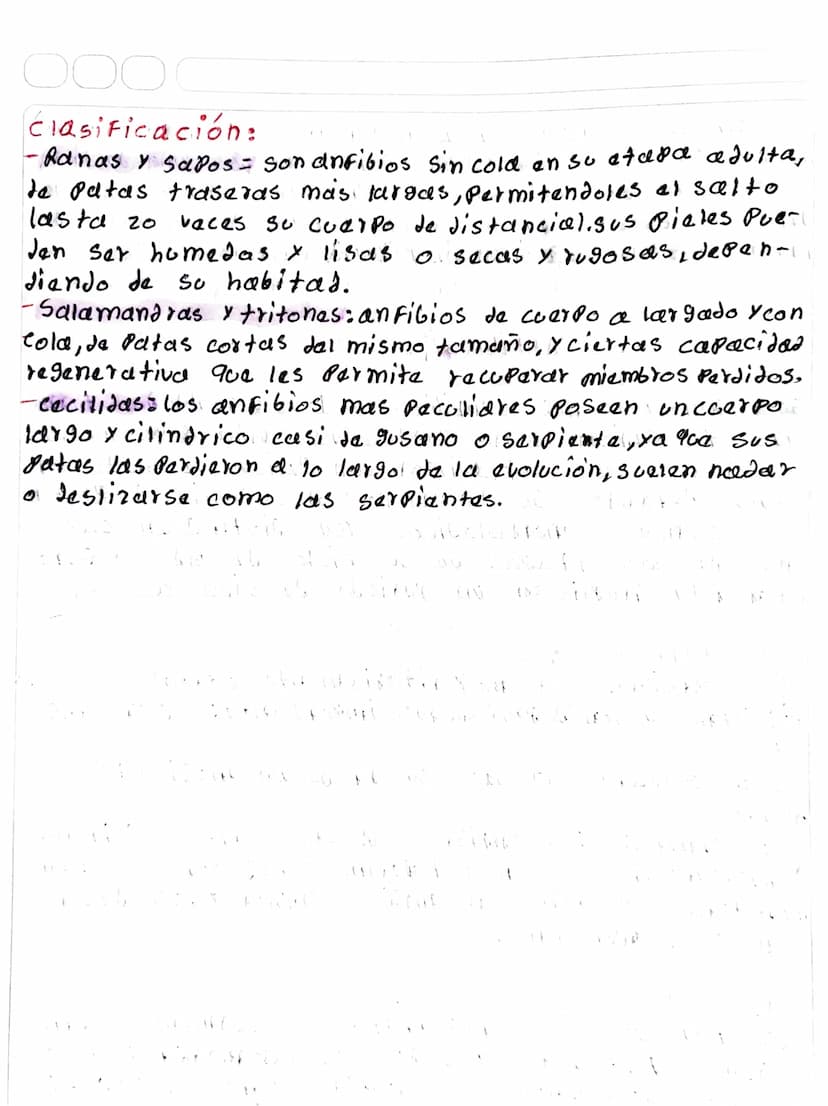 Clasificación:
- Ranas y sapos= son anfibios sin cola en su etapa adulta,
de patas traseras más largas, permitendoles el salto
(asta 20 veces su cuerpo de distancia). sus pieles pue-
den ser humedas y lisas o secas y rugosas, depen-
diendo de su habitad.
- Salamandras y tritones: anfibios de cuerpo a largado y con
cola, de patas cortas del mismo tamaño, y ciertas capacidad
regenerativa que les permite recuperar miembros perdidos.
- cecilidas: los anfibios mas peculiares poseen un cuerpo
largo y cilíndrico casi de gusano o serpiente, ya que sus
patas las perdieron a lo largo de la evolución, suelen nadar
o deslizarse como las serpientes.